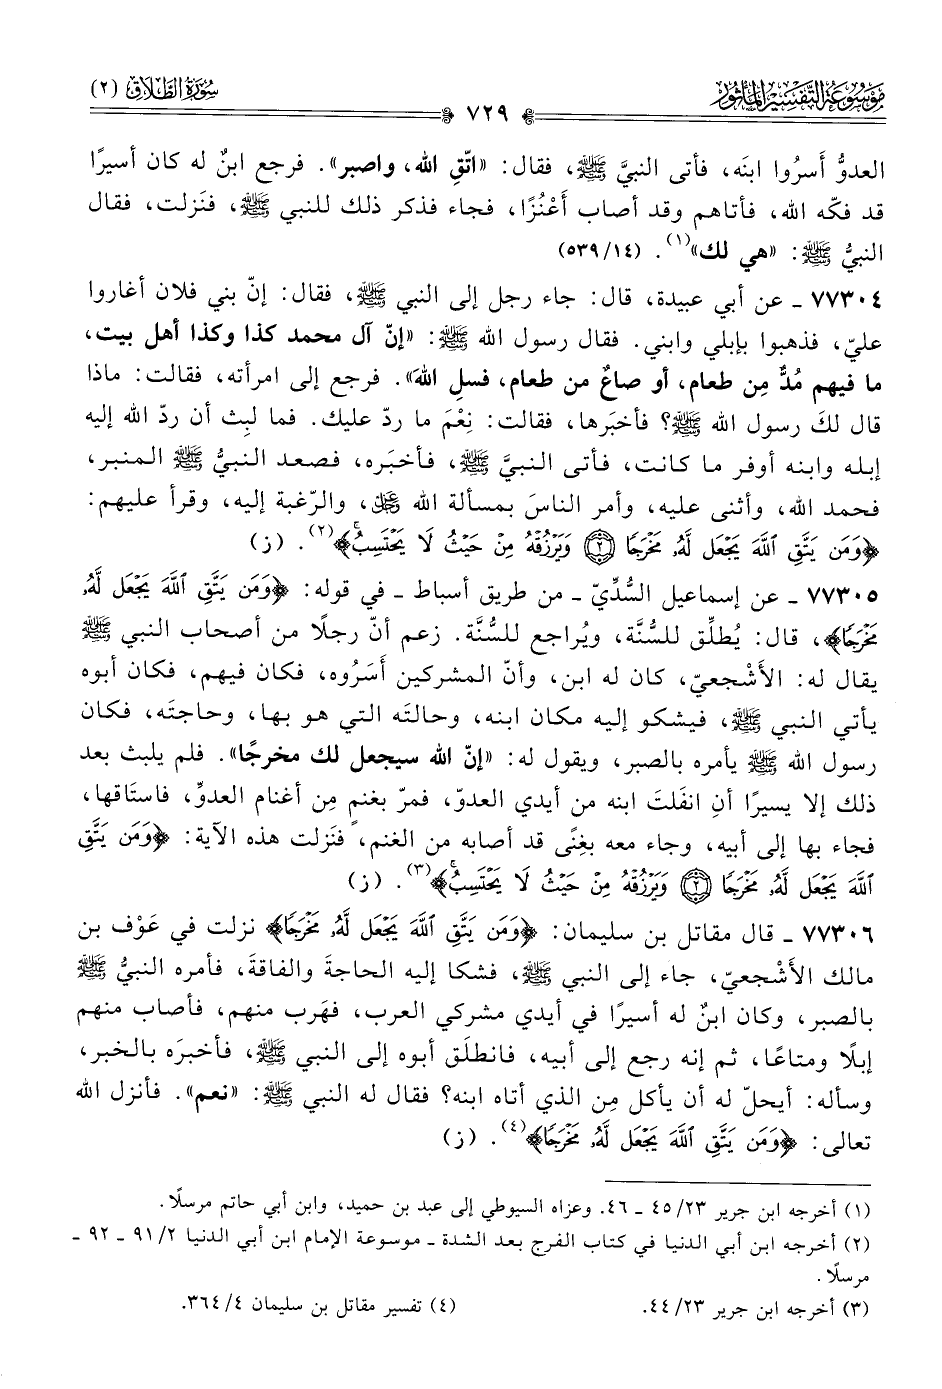 مَوْسُوعَةُ التَّفْسِيرِ المَأْثُورِ
سُورَةُ الطَّلَاقِ (٢)
٧٢٩
العدوُّ أَسرُوا ابنَه، فأتى النبيَّ ﷺ، فقال: «اتّقِ الله، واصبر». فرجع ابنٌ له كان أسيرًا
قد فكّه الله، فأتاهم وقد أصاب أَعْنُزًا، فجاء فذكر ذلك للنبي ﷺ، فنَزلت، فقال
النبيُّ ﷺ: «هي لك»(١). (١٤/٥٣٩)
٧٧٣٠٤ ـ عن أبي عبيدة، قال: جاء رجل إلى النبي ﷺ، فقال: إنّ بني فلان أغاروا
عليّ، فذهبوا بإبلي وابني. فقال رسول الله ﷺ: «إنّ آل محمد كذا وكذا أهل بيت،
ما فيهم مُدٌّ مِن طعام، أو صاعٌ من طعام، فسلِ اللهَ». فرجع إلى امرأته، فقالت: ماذا
قال لكَ رسول الله ﷺ؟ فأخبَرها، فقالت: نِعْمَ ما ردّ عليك. فما لبِث أن ردّ الله إليه
إبله وابنه أوفر ما كانت، فأتى النبيَّ ﷺ، فأخبَره، فصعد النبيُّ ﷺ المنبر،
فحمد الله، وأثنى عليه، وأمر الناسَ بمسألة الله ﷿، والرّغبة إليه، وقرأ عليهم:
﴿وَمَن يَتَّقِ ٱللَّهَ يَجۡعَل لَّهُۥ مَخۡرَجٗا ۝٢ وَيَرۡزُقۡهُ مِنۡ حَيۡثُ لَا يَحۡتَسِبُۚ﴾(٢). (ز)
٧٧٣٠٥ ـ عن إسماعيل السُّدِّيّ ـ من طريق أسباط ـ في قوله: ﴿وَمَن يَتَّقِ ٱللَّهَ يَجۡعَل لَّهُۥ
مَخۡرَجٗا﴾، قال: يُطلِّق للسُّنَّة، ويُراجع للسُّنَّة. زعم أنّ رجلًا من أصحاب النبي ﷺ
يقال له: الأَشْجعيّ، كان له ابن، وأنّ المشركين أسَرُوه، فكان فيهم، فكان أبوه
يأتي النبي ﷺ، فيشكو إليه مكان ابنه، وحالتَه التي هو بها، وحاجتَه، فكان
رسول الله ﷺ يأمره بالصبر، ويقول له: «إنّ الله سيجعل لك مخرجًا». فلم يلبث بعد
ذلك إلا يسيرًا أنِ انفَلتَ ابنه من أيدي العدوّ، فمرّ بغنمٍ مِن أغنام العدوِّ، فاستَاقها،
فجاء بها إلى أبيه، وجاء معه بغِنًى قد أصابه من الغنم، فنَزلت هذه الآية: ﴿وَمَن يَتَّقِ
ٱللَّهَ يَجۡعَل لَّهُۥ مَخۡرَجٗا ۝٢ وَيَرۡزُقۡهُ مِنۡ حَيۡثُ لَا يَحۡتَسِبُۚ﴾(٣). (ز)
٧٧٣٠٦ ـ قال مقاتل بن سليمان: ﴿وَمَن يَتَّقِ ٱللَّهَ يَجۡعَل لَّهُۥ مَخۡرَجٗا﴾ نزلت في عَوْف بن
مالك الأَشْجعيّ، جاء إلى النبي ﷺ، فشكا إليه الحاجةَ والفاقةَ، فأمره النبيُّ ﷺ
بالصبر، وكان ابنٌ له أسيرًا في أيدي مشركي العرب، فهَرب منهم، فأصاب منهم
إبلًا ومتاعًا، ثم إنه رجع إلى أبيه، فانطلَق أبوه إلى النبي ﷺ، فأخبرَه بالخبر،
وسأله: أيحلّ له أن يأكل مِن الذي أتاه ابنه؟ فقال له النبي ﷺ: «نعم». فأنزل الله
تعالى: ﴿وَمَن يَتَّقِ ٱللَّهَ يَجۡعَل لَّهُۥ مَخۡرَجٗا﴾(٤). (ز)
(١) أخرجه ابن جرير ٢٣/ ٤٥ ـ ٤٦. وعزاه السيوطي إلى عبد بن حميد، وابن أبي حاتم مرسلًا.
(٢) أخرجه ابن أبي الدنيا في كتاب الفرج بعد الشدة ـ موسوعة الإمام ابن أبي الدنيا ٢/ ٩١ ـ ٩٢ ـ
مرسلًا.
(٣) أخرجه ابن جرير ٢٣/ ٤٤.
(٤) تفسير مقاتل بن سليمان ٤/ ٣٦٤.